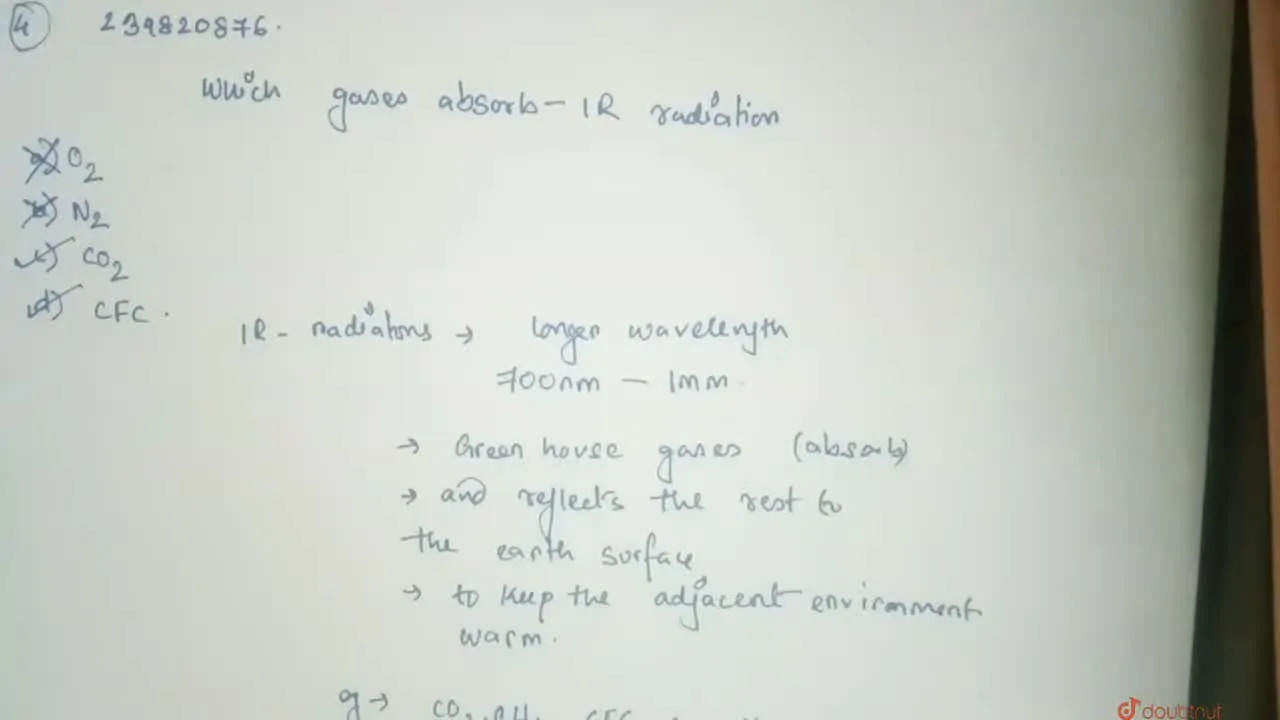 4 239820876.
Which gases absorb - IR radiation
a) O2
b) N2
c) CO2
d) CFC.
IR - radiations → longer wavelength
700nm - 1mm.
→ Green house gases (absorb)
→ and reflects the rest to
the earth surface
→ to keep the adjacent environment
warm.
CO2, CFC
doubtnut